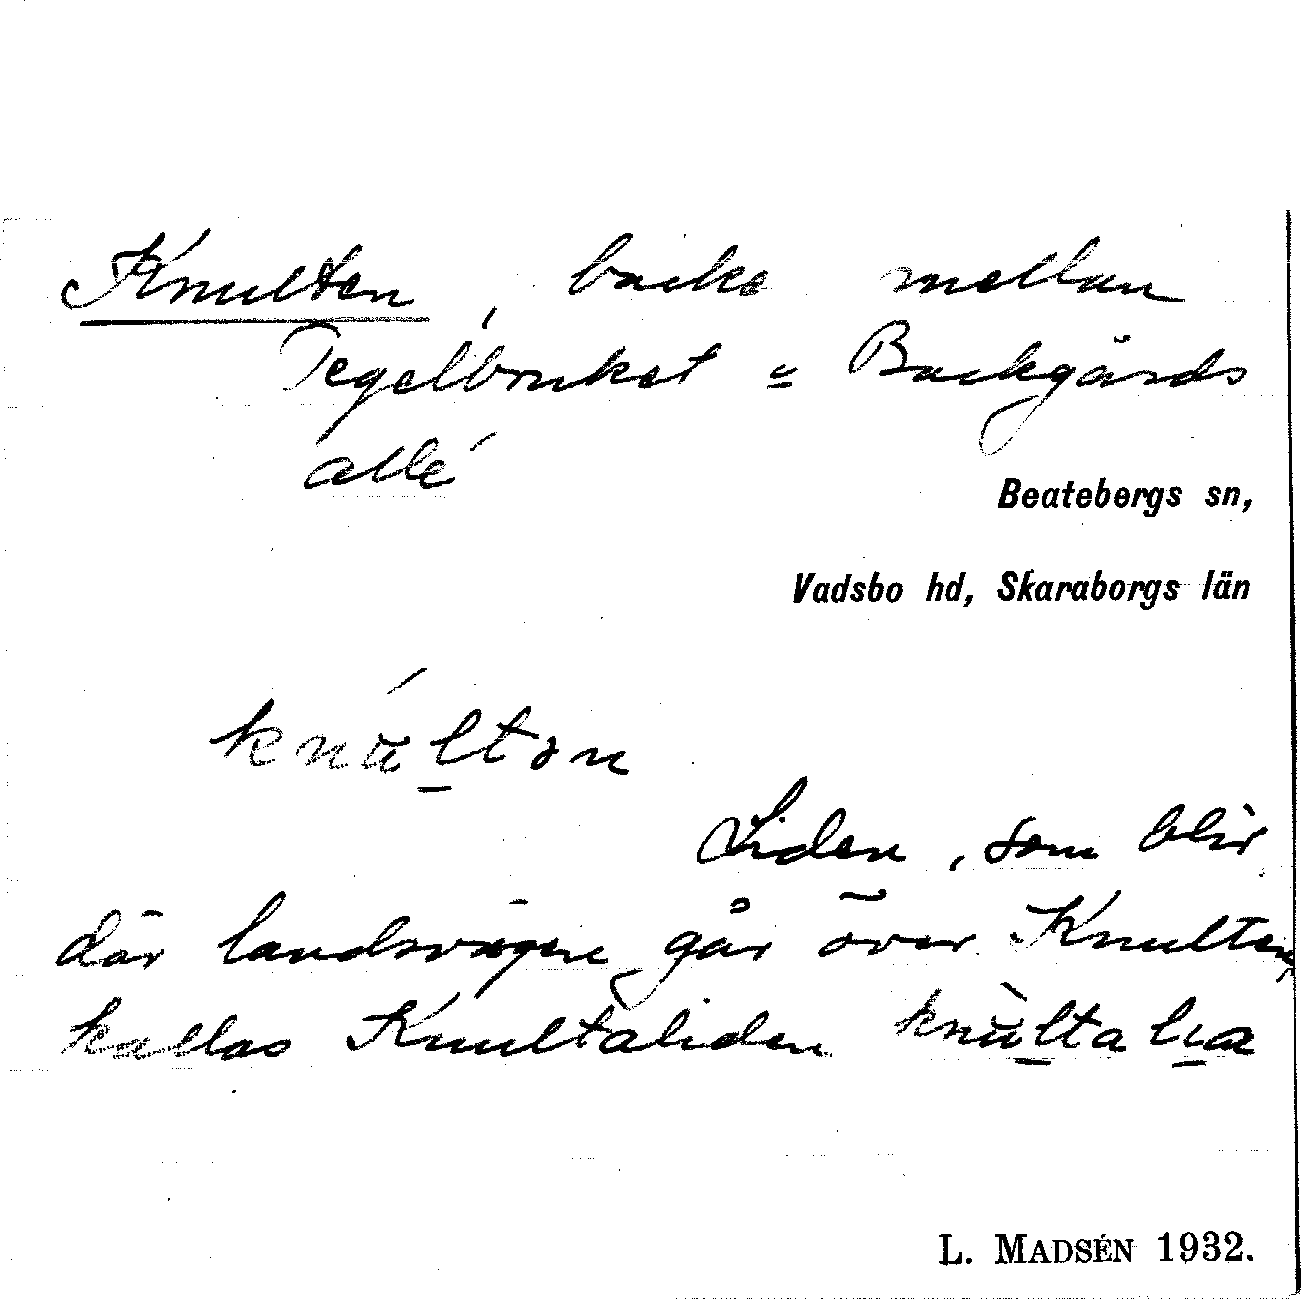 Knulten, backe mellan
Tegelbruket o Backgårds
allé
Beatebergs sn,
Vadsbo hd, Skaraborgs län
knúlton
Liden, som blir
där landsvägen går över Knulten,
kallas Knultaliden knùltalia
L. MADSÉN 1932.